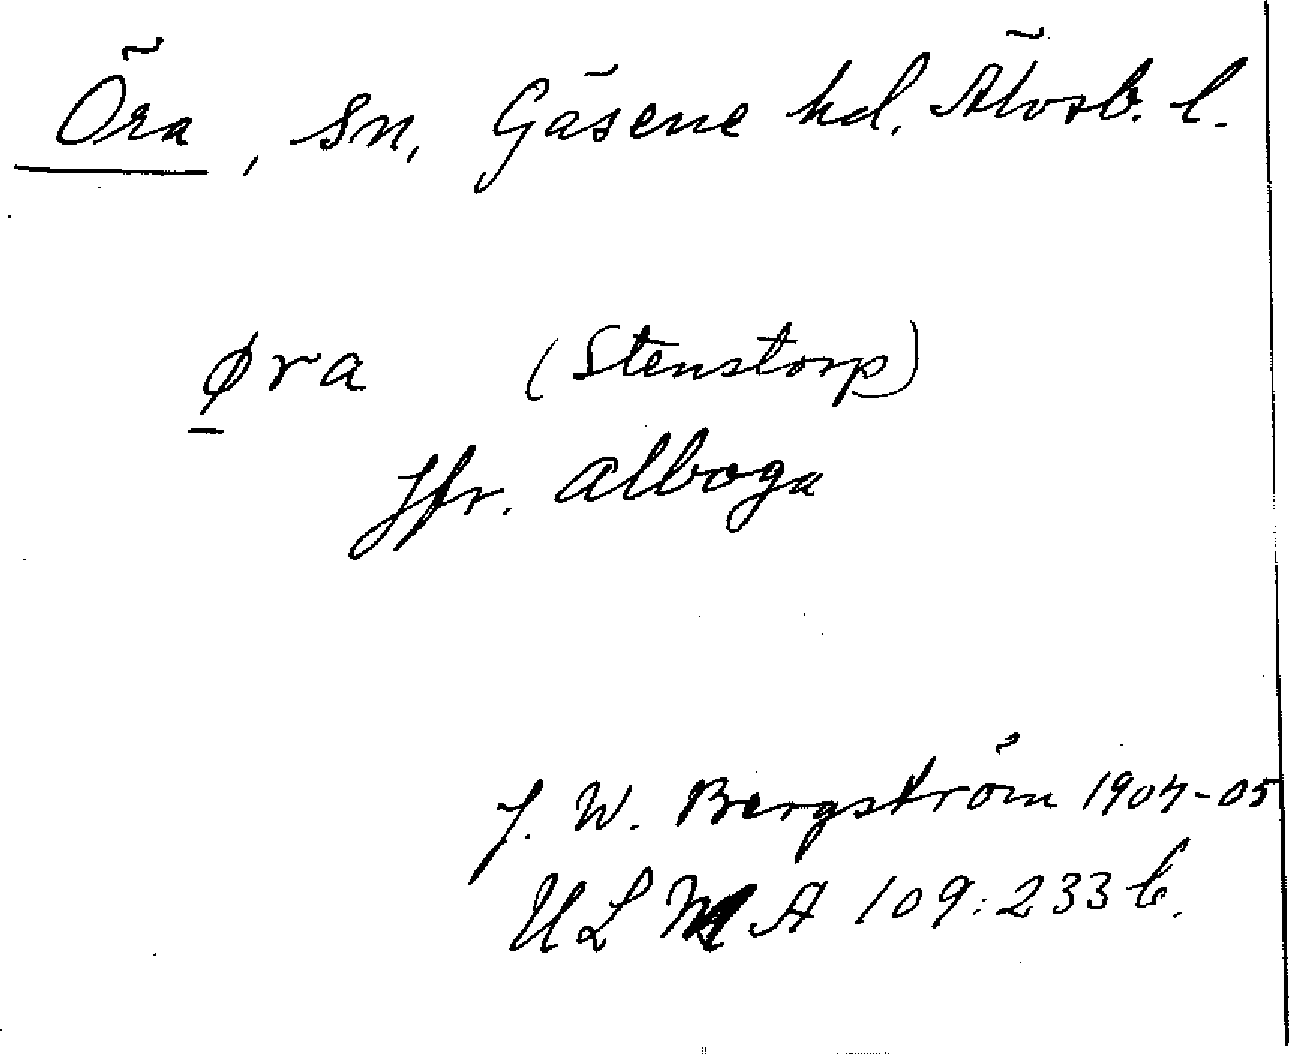 Öra, sn, Gäsene hd. Älvsb. l.
øra (Stenstorp)
Jfr. Alboga
J. W. Bergström 1904-05
ULMA 109:233 b.